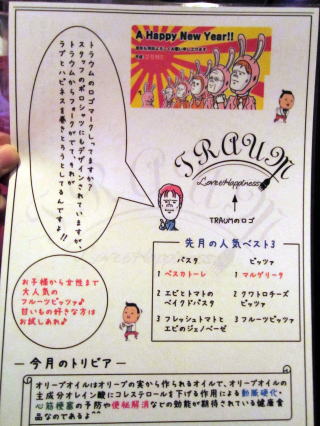 A Happy New Year!!
トラウムのロゴマークしってますか?
スタッフのポロシャツにもデザインされていますが、
トラウムからマークがでてそれが
ラブとハピネスを巻きとろうとしてるんですよ!!
TRAUM
Love&Happiness
TRAUMのロゴ
先月の人気ベスト3
パスタ
1 ペスカトーレ
2 エビとトマトの
ベイクドパスタ
3 フレッシュトマトと
エビのジェノベーゼ
ピッツァ
1 マルゲリータ
2 クワトロチーズ
ピッツァ
3 フルーツピッツァ
お子様から女性まで
大人気の
フルーツピッツァ♪
甘いもの好きな方は
お試しあれ♪
今月のトリビア
オリーブオイルはオリーブの実から作られるオイルで、オリーブオイルの
主成分オレイン酸にコレステロールを下げる作用による動脈硬化・
心筋梗塞の予防や便秘解消などの効能が期待されている健康食
品なのであるよ^^